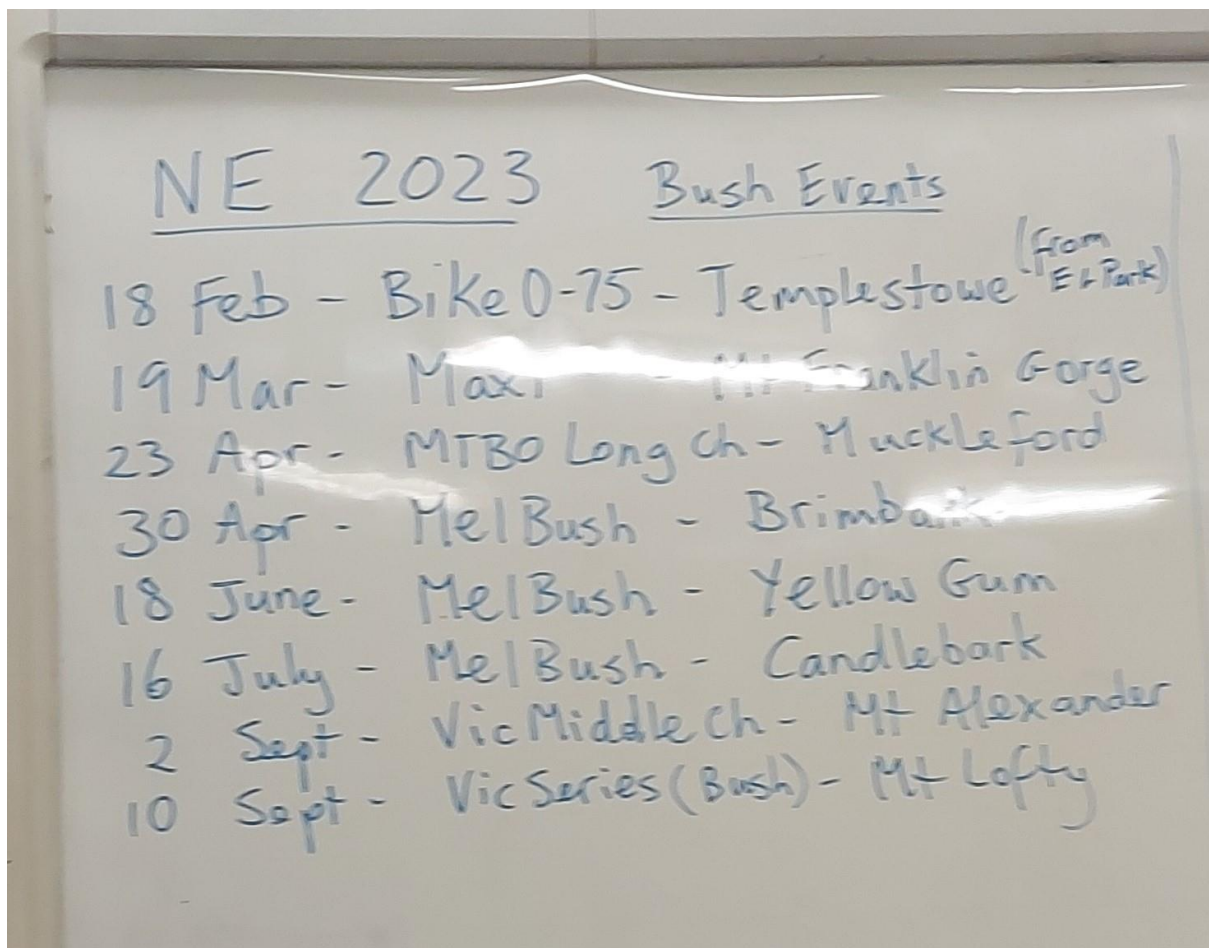 NE 2023 Bush Events
18 Feb - Bike O-75 - Templestowe (from
Park)
19 Mar - Maxi - Mt Franklin Gorge
23 Apr - MTBO Long Ch - Muckleford
30 Apr - MelBush - Brimbank
18 June - MelBush - Yellow Gum
16 July - MelBush - Candlebark
2 Sept - Vic Middle Ch - Mt Alexander
10 Sept - Vic Series (Bush) - Mt Lofty